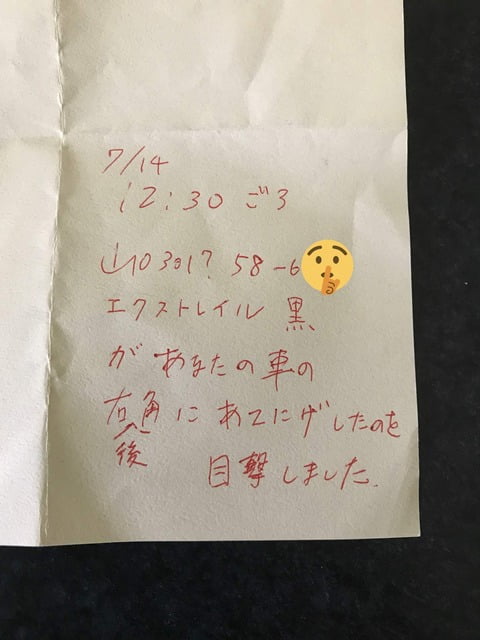 7/14
12:30 ごろ
山口 301? 58-6
エクストレイル 黒
があなたの車の
右後角にあてにげしたのを
目撃しました.